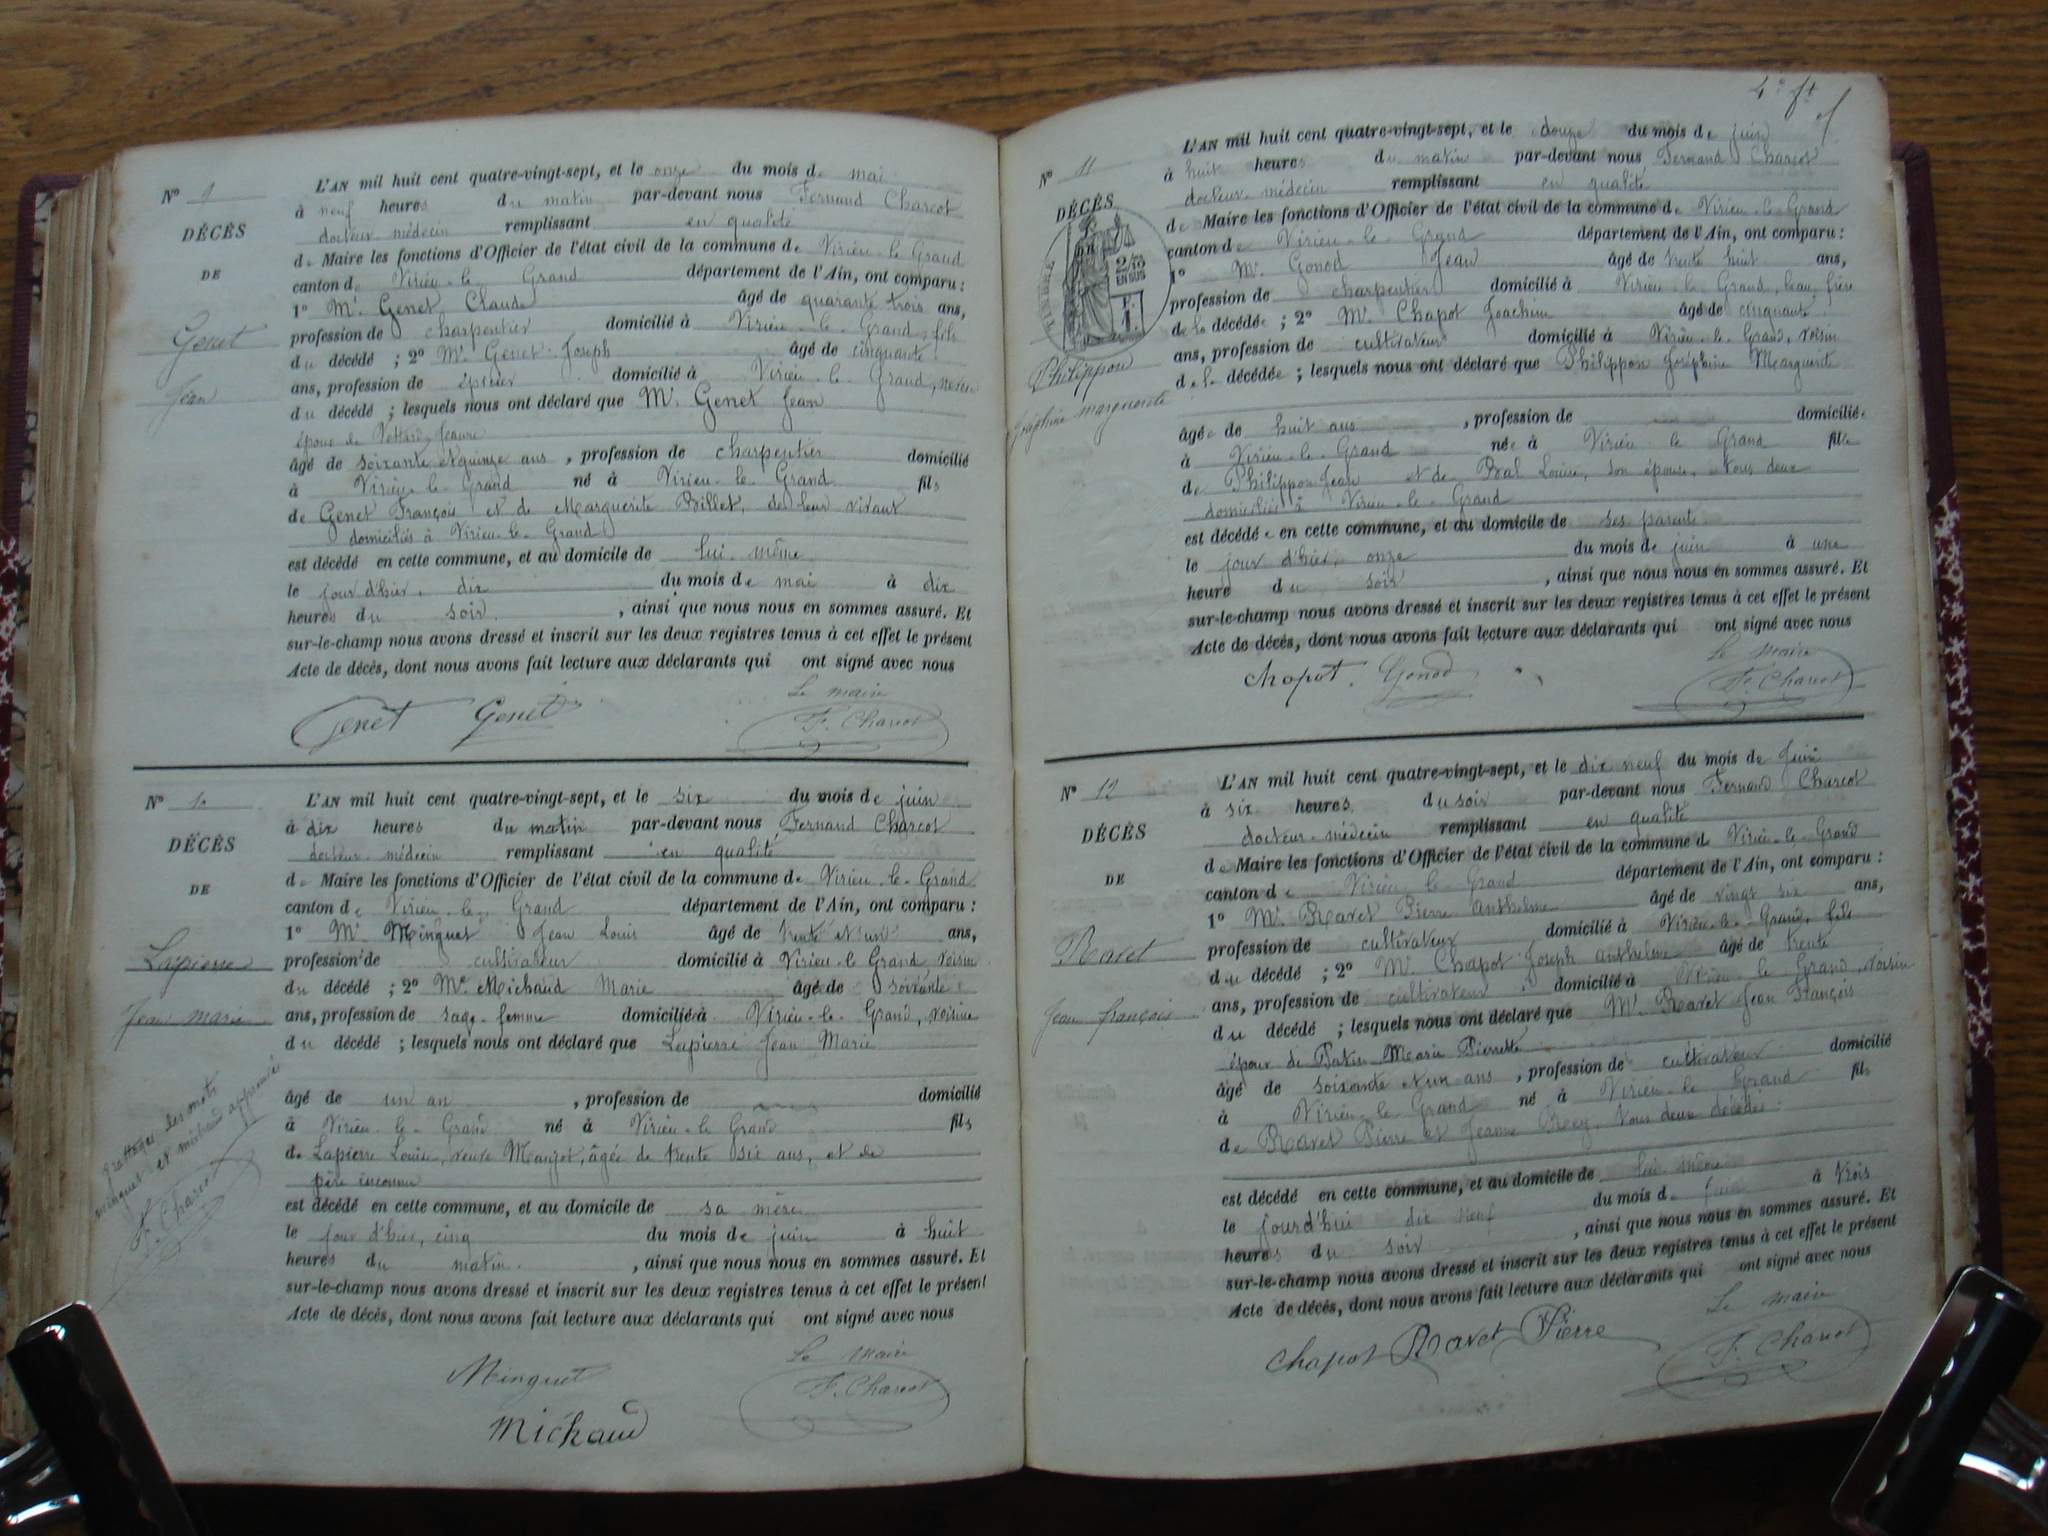 N° 9
DÉCÈS
DE
Genet
Jean
L'AN mil huit cent quatre-vingt-sept, et le onze du mois de mai
à neuf heures du matin par-devant nous Fernand Charcot
docteur médecin remplissant en qualité
de Maire les fonctions d'Officier de l'état civil de la commune de Virieu-le-Grand
canton de Virieu-le-Grand département de l'Ain, ont comparu :
1° Mr Genet Claude âgé de quarante trois ans,
profession de charpentier domicilié à Virieu-le-Grand, fils
du décédé ; 2° Mr Genet Joseph âgé de cinquante
ans, profession de épicier domicilié à Virieu-le-Grand, neveu
du décédé ; lesquels nous ont déclaré que Mr Genet Jean
époux de Jeanne
âgé de soixante et quinze ans, profession de charpentier domicilié
à Virieu-le-Grand né à Virieu-le-Grand fils
de Genet François et de Marguerite Billet, de leur vivant
domiciliés à Virieu-le-Grand
est décédé en cette commune, et au domicile de lui-même
le jour d'hier, dix du mois de mai à dix
heures du soir, ainsi que nous nous en sommes assuré. Et
sur-le-champ nous avons dressé et inscrit sur les deux registres tenus à cet effet le présent
Acte de décès, dont nous avons fait lecture aux déclarants qui ont signé avec nous
Le maire
Genet Genet F. Charcot
N° 10
DÉCÈS
DE
Lapierre
Jean marie
grattage des mots
minguet et michaud approuvé
F. Charcot
L'AN mil huit cent quatre-vingt-sept, et le six du mois de juin
à dix heures du matin par-devant nous Fernand Charcot
docteur-médecin remplissant en qualité
de Maire les fonctions d'Officier de l'état civil de la commune de Virieu-le-Grand
canton de Virieu-le-Grand département de l'Ain, ont comparu :
1° Mr Minguet Jean Louis âgé de trente et un ans,
profession de cultivateur domicilié à Virieu-le-Grand, voisin
du décédé ; 2° Me Michaud Marie âgée de soixante
ans, profession de sage-femme domiciliée à Virieu-le-Grand, voisine
du décédé ; lesquels nous ont déclaré que Lapierre Jean Marie
âgé de un an, profession de domicilié
à Virieu-le-Grand né à Virieu-le-Grand fils
de Lapierre Louise, veuve âgée de trente six ans, et de
père inconnu
est décédé en cette commune, et au domicile de sa mère
le jour d'hier, cinq du mois de juin à huit
heures du matin, ainsi que nous nous en sommes assuré. Et
sur-le-champ nous avons dressé et inscrit sur les deux registres tenus à cet effet le présent
Acte de décès, dont nous avons fait lecture aux déclarants qui ont signé avec nous
Le maire
Minguet F. Charcot
Michaud
4e ft
N° 11
DÉCÈS
DE
TIMBRE
2/10
EN SUS
Philippon
Joséphine marguerite
L'AN mil huit cent quatre-vingt-sept, et le douze du mois de juin
à huit heures du matin par-devant nous Fernand Charcot
docteur-médecin remplissant en qualité
de Maire les fonctions d'Officier de l'état civil de la commune de Virieu-le-Grand
canton de Virieu-le-Grand département de l'Ain, ont comparu :
1° Mr Gonod Jean âgé de trente huit ans,
profession de charpentier domicilié à Virieu-le-Grand, beau-frère
de la décédée ; 2° Mr Chapot Joachim âgé de cinquante
ans, profession de cultivateur domicilié à Virieu-le-Grand, voisin
de la décédée ; lesquels nous ont déclaré que Philippon Joséphine Marguerite
âgée de huit ans, profession de domiciliée
à Virieu-le-Grand née à Virieu-le-Grand fille
de Philippon Jean et de Bal Louise, son épouse, tous deux
domiciliés à Virieu-le-Grand
est décédée en cette commune, et au domicile de ses parents
le jour d'hier, onze du mois de juin à une
heure du soir, ainsi que nous nous en sommes assuré. Et
sur-le-champ nous avons dressé et inscrit sur les deux registres tenus à cet effet le présent
Acte de décès, dont nous avons fait lecture aux déclarants qui ont signé avec nous
Le maire
Chapot. Gonod F. Charcot
N° 12
DÉCÈS
DE
Ravet
Jean françois
L'AN mil huit cent quatre-vingt-sept, et le dix neuf du mois de Juin
à six heures du soir par-devant nous Fernand Charcot
docteur-médecin remplissant en qualité
de Maire les fonctions d'Officier de l'état civil de la commune de Virieu-le-Grand
canton de Virieu-le-Grand département de l'Ain, ont comparu :
1° Mr Ravet Pierre Anthelme âgé de vingt six ans,
profession de cultivateur domicilié à Virieu-le-Grand, fils
du décédé ; 2° Mr Chapot Joseph Anthelme âgé de trente
ans, profession de cultivateur domicilié à Virieu-le-Grand, voisin
du décédé ; lesquels nous ont déclaré que Mr Ravet Jean François
époux de Marie Pierrette
âgé de soixante et un ans, profession de cultivateur domicilié
à Virieu-le-Grand né à Virieu-le-Grand fils
de Ravet Pierre et Jeanne Rey, tous deux décédés
est décédé en cette commune, et au domicile de lui-même
le jourd'hui dix neuf du mois de juin à trois
heures du soir, ainsi que nous nous en sommes assuré. Et
sur-le-champ nous avons dressé et inscrit sur les deux registres tenus à cet effet le présent
Acte de décès, dont nous avons fait lecture aux déclarants qui ont signé avec nous
Le maire
Chapot Ravet Pierre F. Charcot